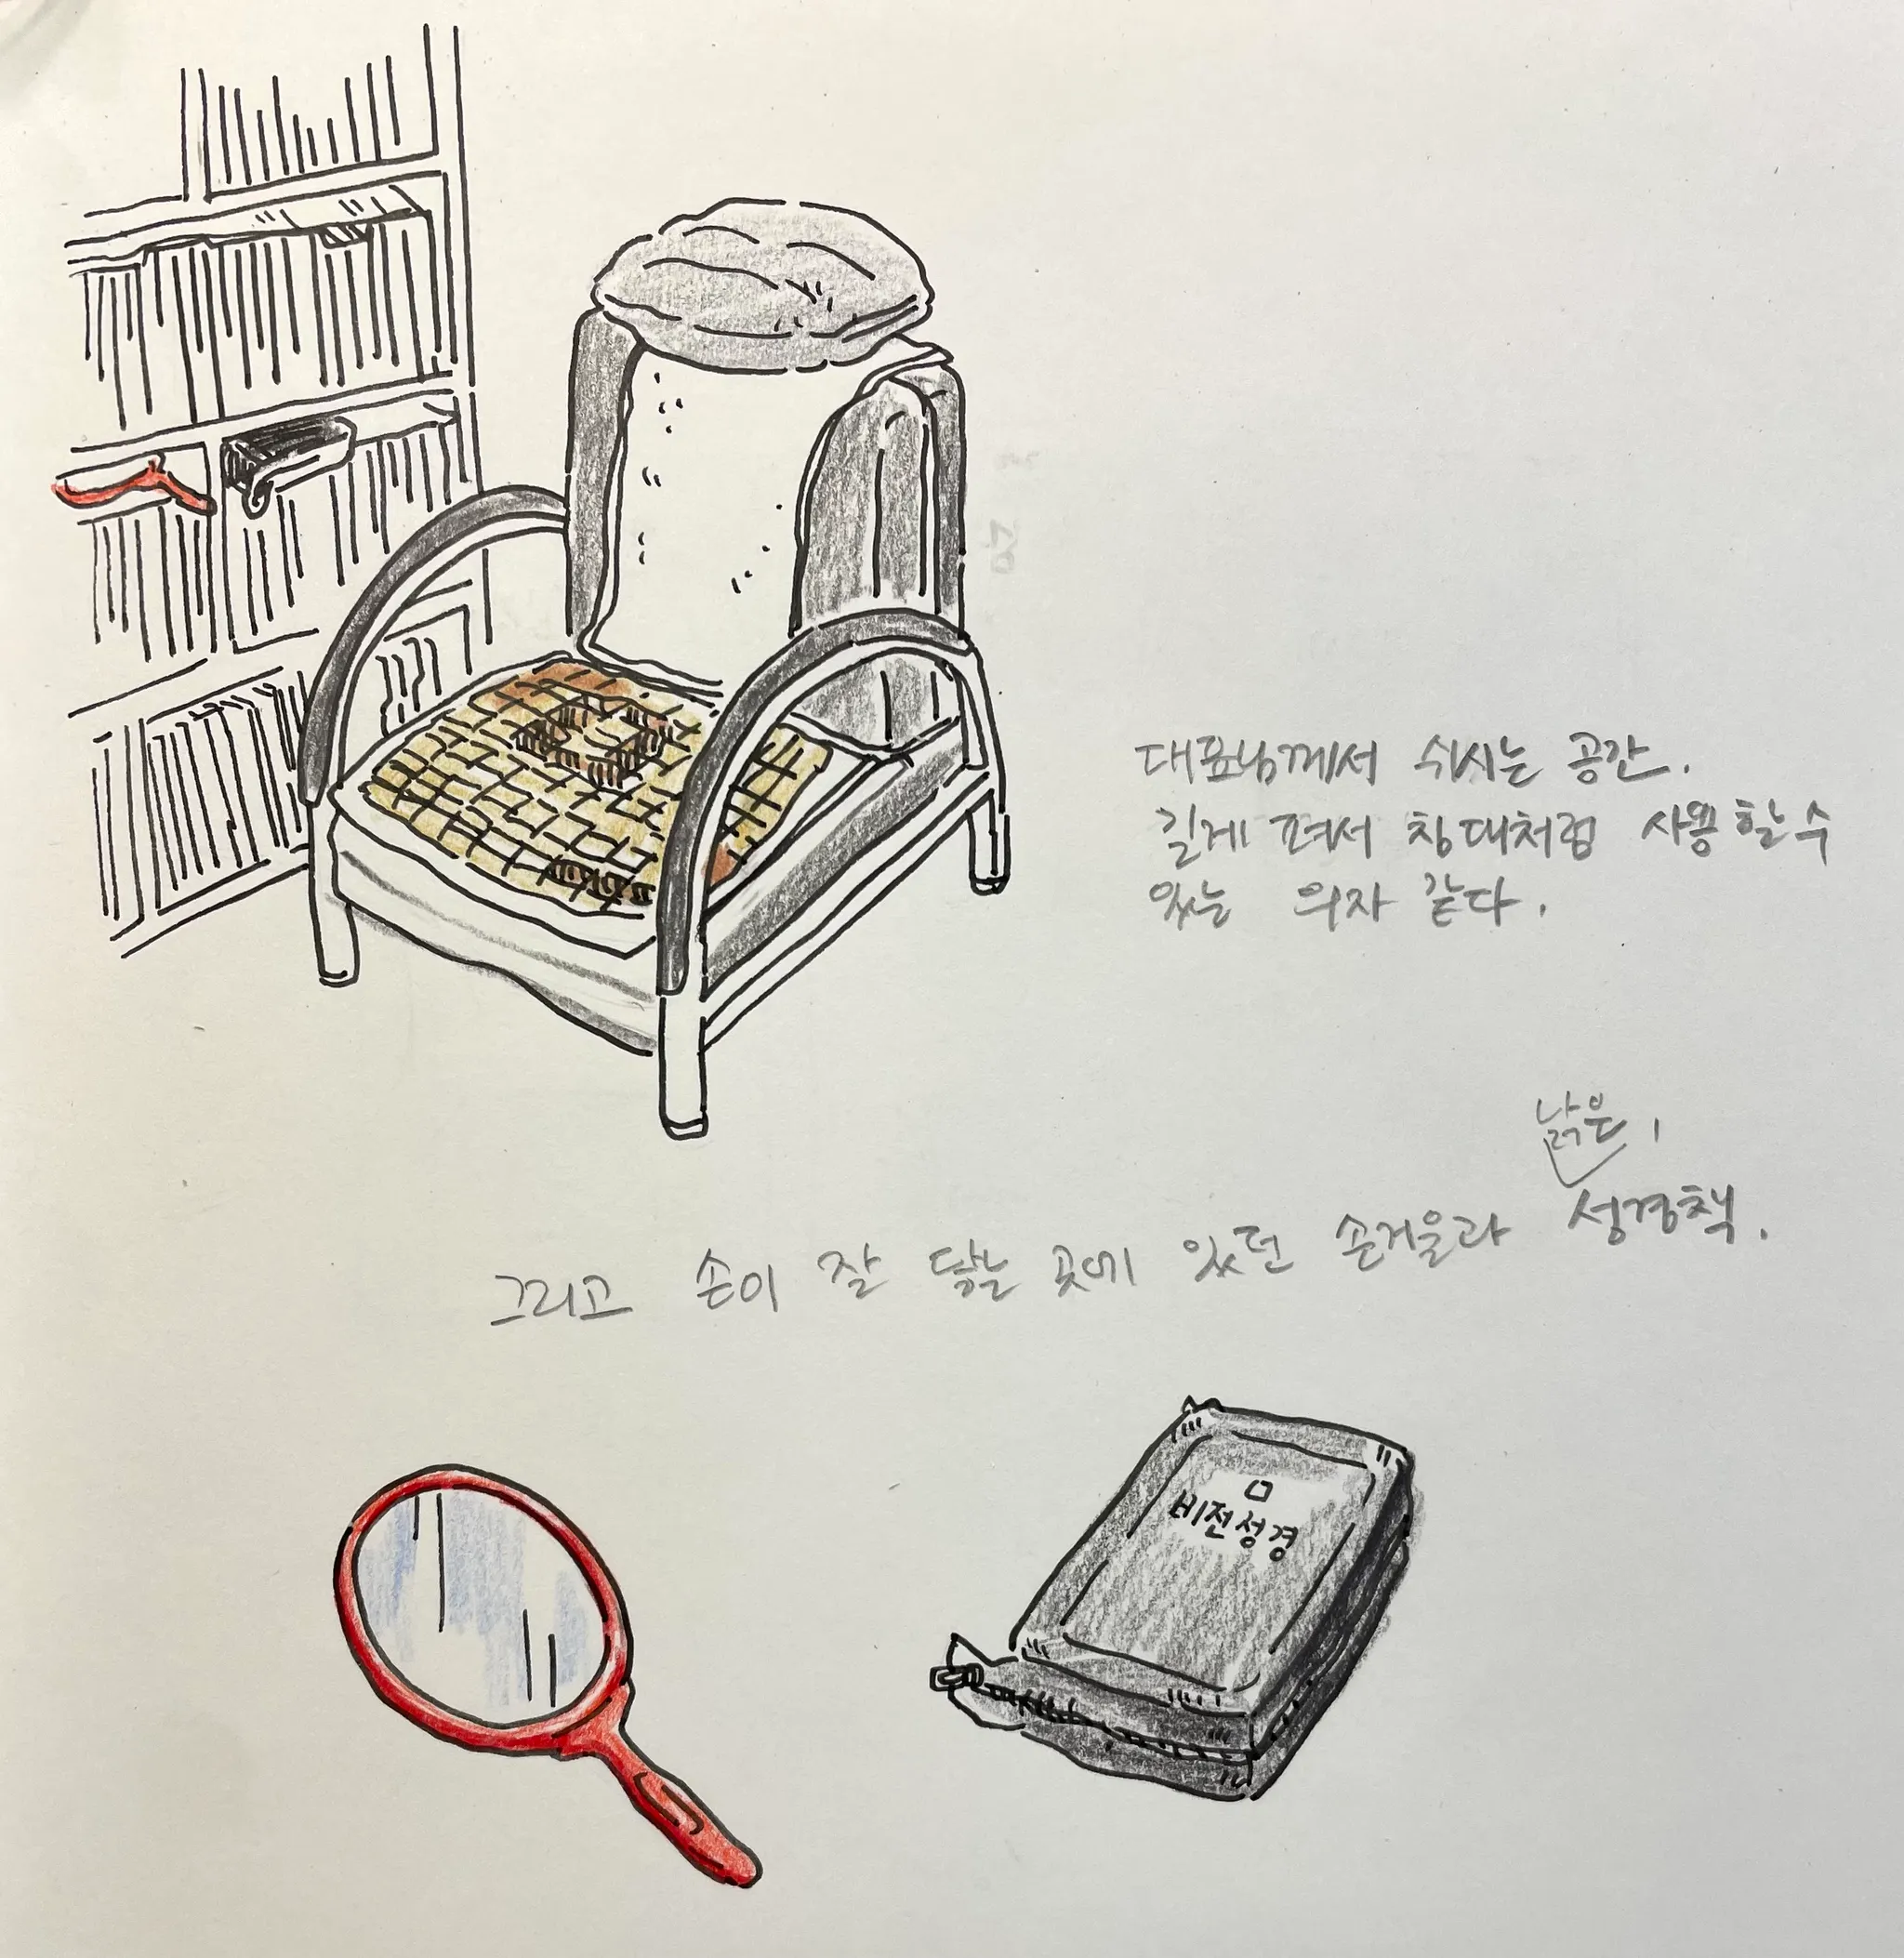 대표님께서 쉬시는 공간.
길게 펴서 침대처럼 사용할 수
있는 의자 같다.
낡은,
그리고 손이 잘 닿는 곳에 있던 손거울과 성경책.
비전성경